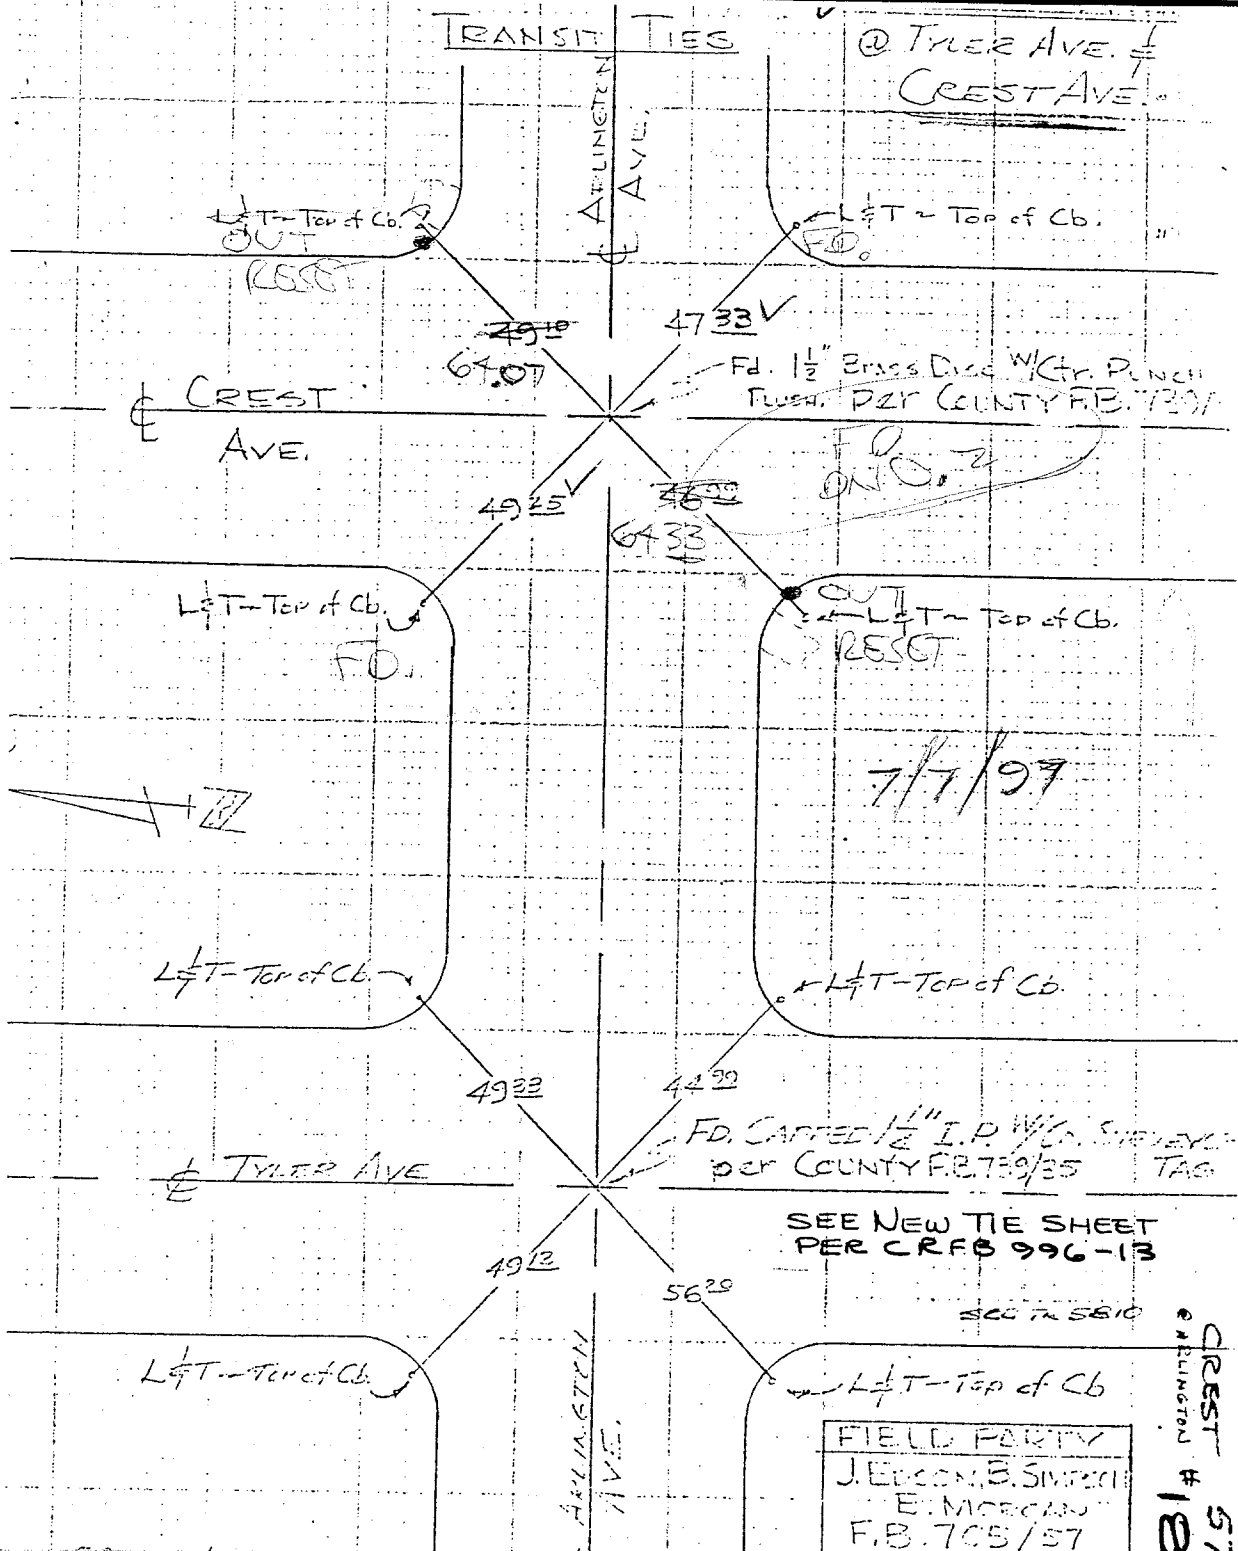 TRANSIT TIES
@ TYLER AVE. &
CREST AVE.
℄ ARLINGTON
AVE.
L&T~Top of Cb.
OUT
RESET
L&T~Top of Cb.
FD.
49 10
64.07
47 33 ✓
Fd. 1½" Brass Disc W/Ctr. Punch
Flush. Per COUNTY F.B.
FD.
DN 0.2
℄ CREST
AVE.
49 25 ✓
64 33
L&T~Top of Cb.
FD.
OUT
L&T~Top of Cb.
RESET
7/7/97
N
L&T-Top of Cb.
L&T-Top of Cb.
49 33
44 99
FD. CAPPED 1½" I.P. W/Co.
per COUNTY F.B. 739/35 TAG
℄ TYLER AVE
SEE NEW TIE SHEET
PER CRFB 996-13
49 12
56 29
L&T-Top of Cb.
L&T-Top of Cb
ARLINGTON
AVE.
CREST
@ ARLINGTON
#18
FIELD PARTY
J. EDSON, B. SIMPSON
E. MORGAN
F.B. 705/57